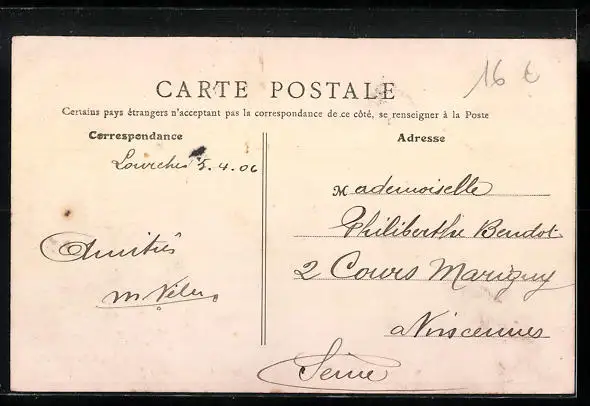 16 €
CARTE POSTALE
Certains pays étrangers n'acceptent pas la correspondance de ce côté, se renseigner à la Poste
Correspondance
Lourches 5.4.06
Amitiés
Adresse
Mademoiselle
Philiberthe Bendot
2 Cours Marigny
a Vincennes
Seine